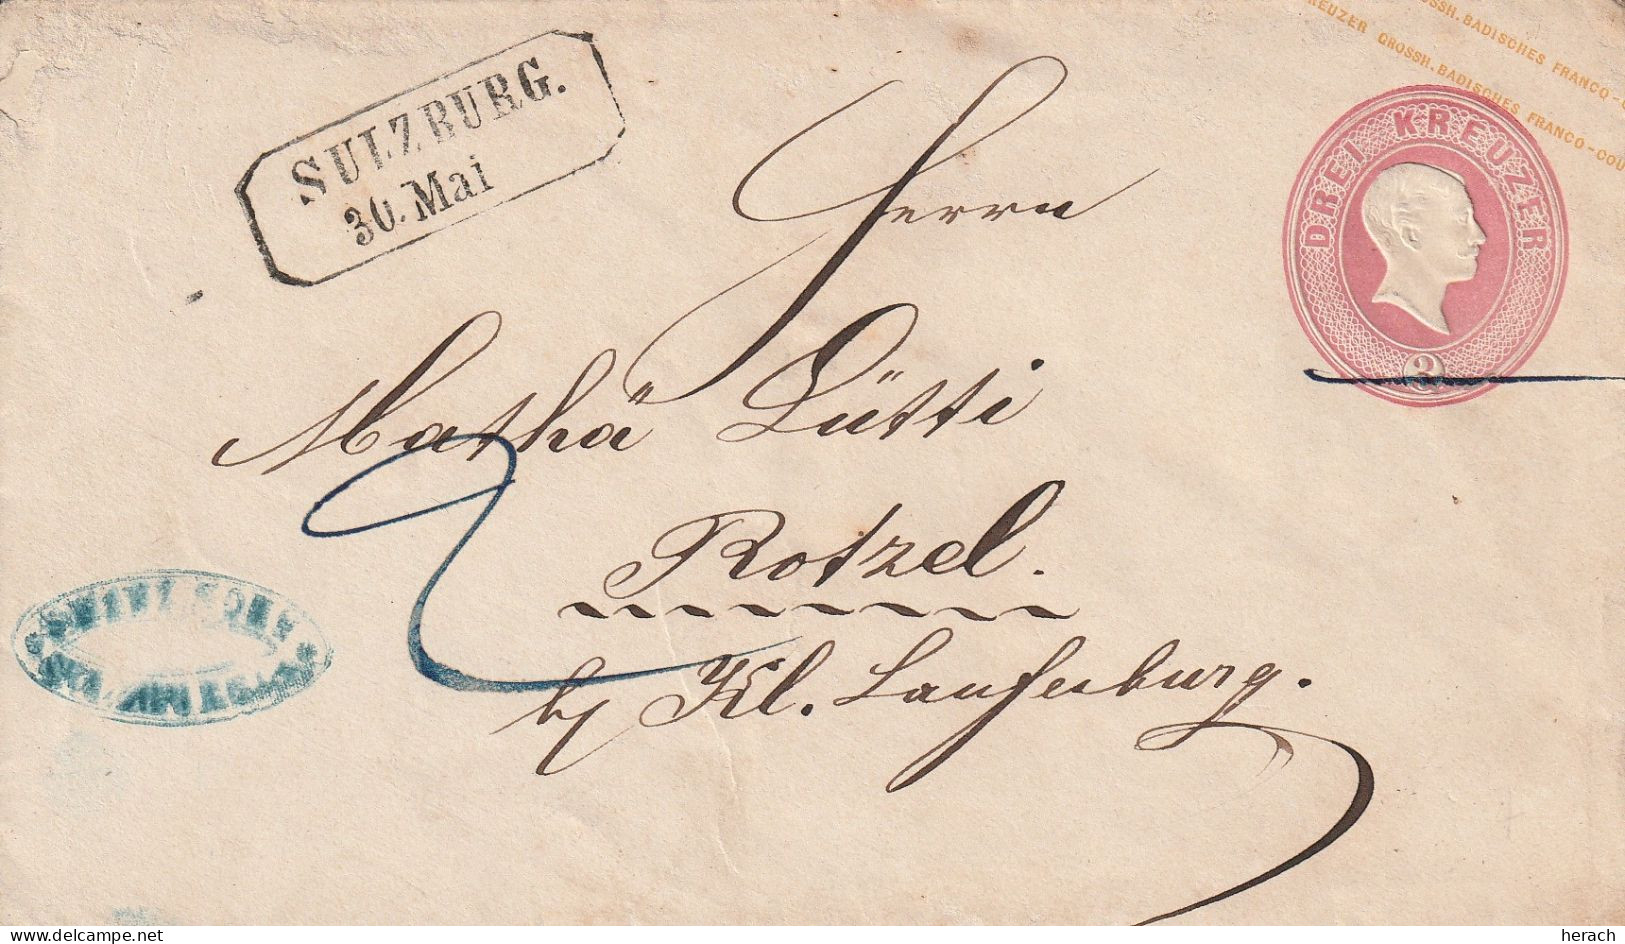 SULZBURG.
30. Mai
KREUZER GROSSH. BADISCHES FRANCO-COU
GROSSH. BADISCHES FRANCO-
DREI KREUZER
3
Herrn
Mathä Lütti
Rotzel.
by Kl. Laufenburg.
2
delcampe.net
herach